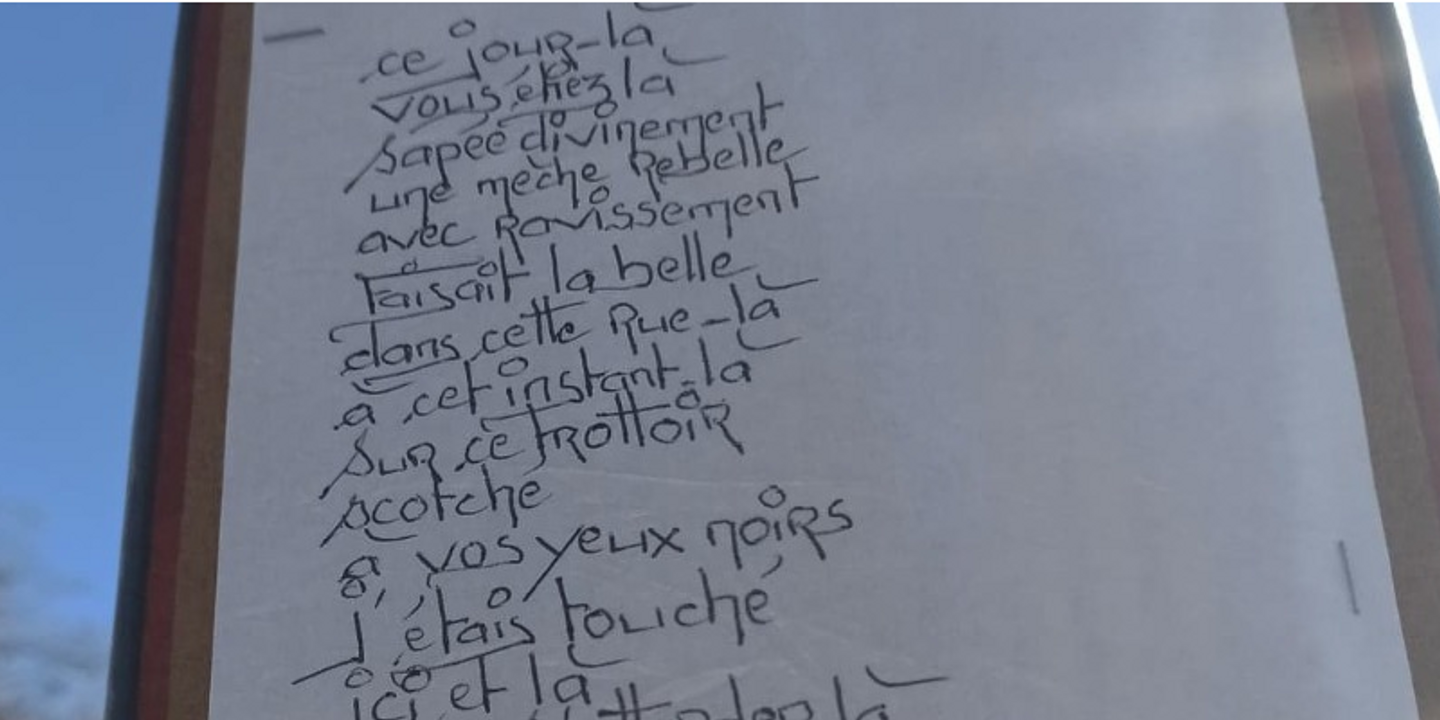 ce jour-là
vous étiez là
sapée divinement
une mèche rebelle
avec ravissement
faisait la belle
dans cette rue-là
à cet instant-là
sur ce trottoir
scotché
à vos yeux noirs
j'étais touché
ici et là